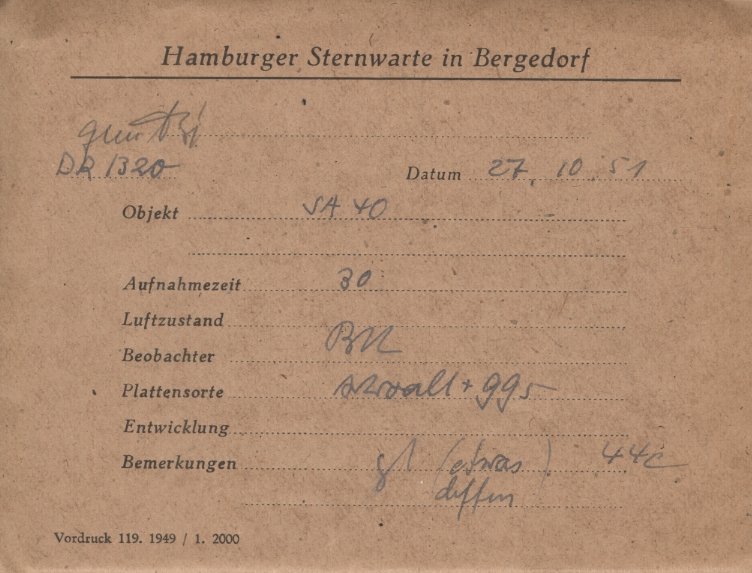 Hamburger Sternwarte in Bergedorf
DR 1320
Datum 27. 10. 51
Objekt SA 40
Aufnahmezeit 30
Luftzustand
Beobachter
Plattensorte + 995
Entwicklung
Bemerkungen (etwas ) 44c
Vordruck 119. 1949 / 1. 2000